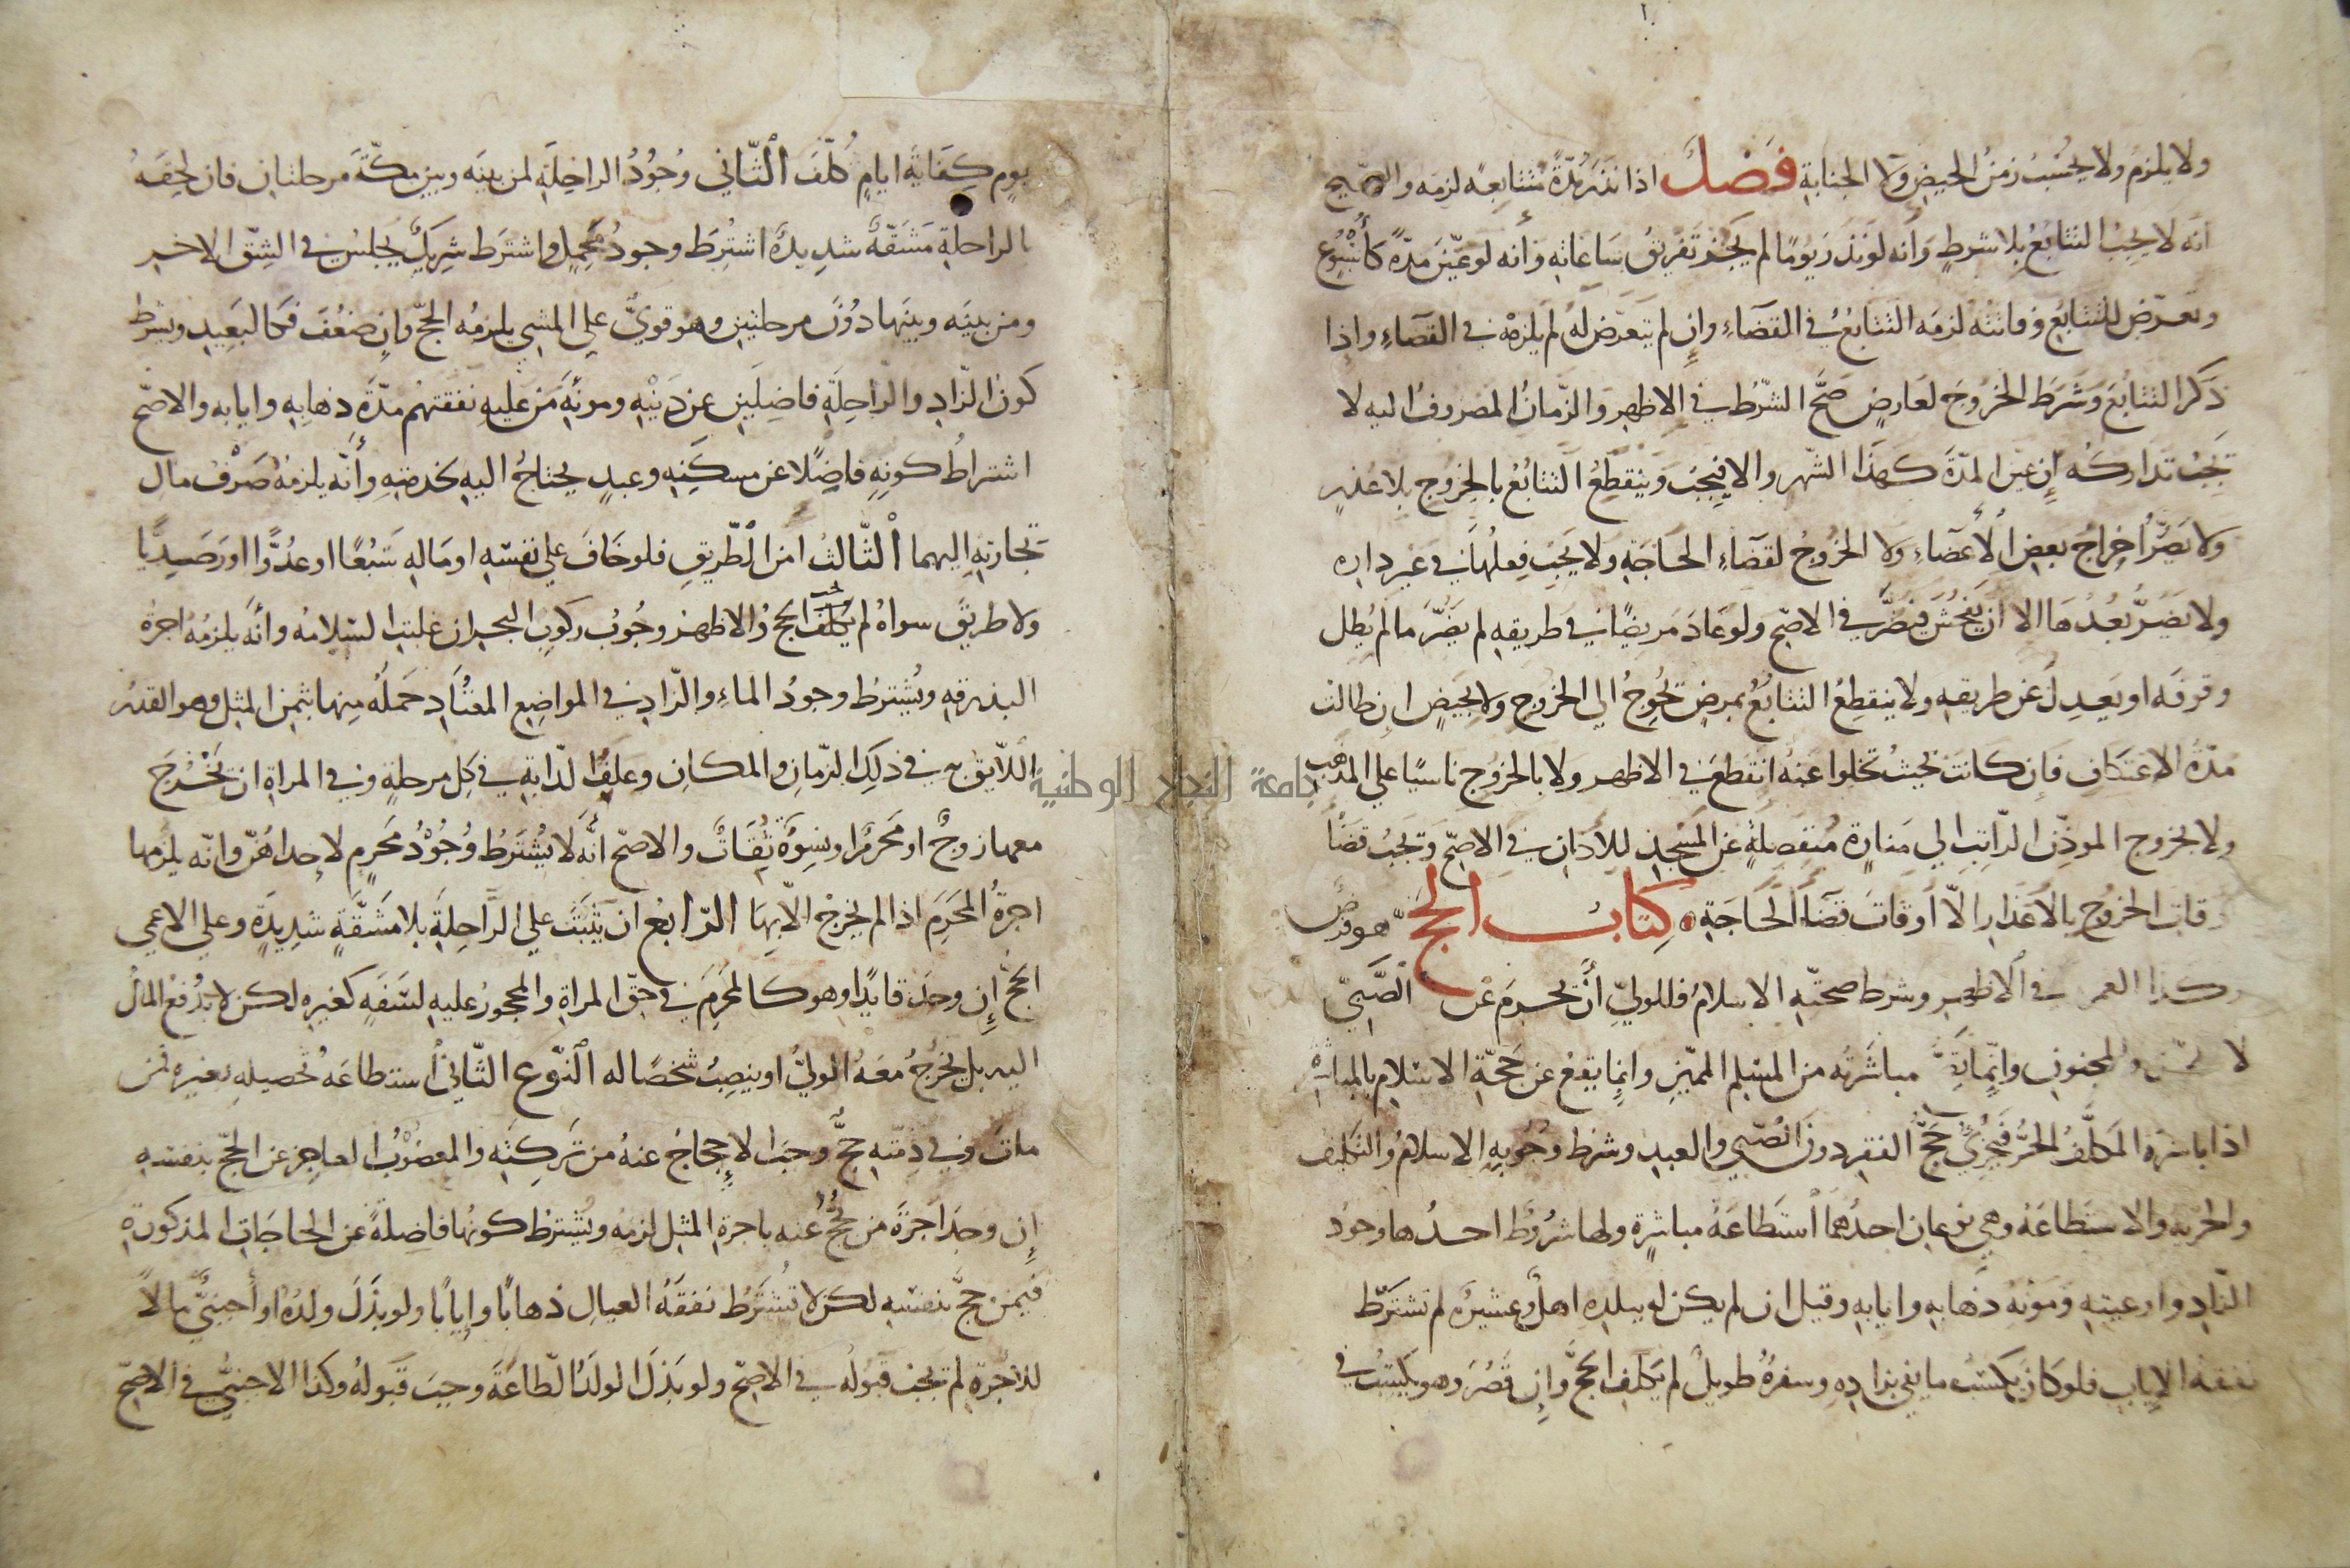 ولا يلزم ولا يحسب زمن الحيض ولا الجنابة فصل اذا نذر مدة متتابعة لزمه والصحيح
انه لا يجب التتابع بلا شرط وأنه لو نذر يوما لم يجز تفريق ساعاته وأنه لو عين مدة كأسبوع
وتعرض للتتابع وفاتته لزمه التتابع في القضاء وإن لم يتعرض له لم يلزمه في القضاء واذا
ذكر التتابع وشرط الخروج لعارض صح الشرط في الاظهر والزمان المصروف اليه لا
يجب تداركه إن عين المدة كهذا الشهر والا فيجب وينقطع التتابع بالخروج بلا عذر
ولا يضر أخراج بعض الأعضاء ولا الخروج لقضاء الحاجة ولا يجب فعلها في غير داره
ولا يضر بعدها الا ان يفحش فيضر في الاصح ولو عاد مريضا في طريقه لم يضر ما لم يطل
وقوفه او يعدل عن طريقه ولا ينقطع التتابع بمرض يحوج الى الخروج ولا بحيض ان طالت
مدة الاعتكاف فإن كانت بحيث تخلوا عنه انقطع في الاظهر ولا بالخروج ناسيا على المذهب
ولا بخروج الموذن الراتب الى منارة منفصلة عن المسجد للأذان في الاصح وتجب قضا
وقات الخروج بالأعذار الا أوقات قضا الحاجة كتاب الحج هو فرض
وكذا العمرة في الاظهر وشرط صحته الاسلام فللولي أن يحرم عن الصبي
لا والمجنون وإنما مباشرته من المسلم المميز وإنما يقع عن حجة الاسلام بالمباشرة
اذا باشره المكلف الحر فيجزئ حج الفقير دون الصبي والعبد وشرط وجوبه الاسلام والتكليف
والحرية والاستطاعة وهي نوعان احدهما أستطاعة مباشرة ولها شروط احدها وجود
الزاد واوعيته ومؤنة ذهابه وايابه وقيل ان لم يكن له ببلده اهل وعشيرة لم تشترط
نفقة الإياب فلو كان يكتسب ما يفي بزاده وسفره طويل لم يكلف الحج وإن قصر وهو يكتسب في
يوم كفاية ايام كلف الثاني وجود الراحلة لمن بينه وبين مكة مرحلتان فان لحقه
بالراحلة مشقة شديدة اشترط وجود محمل واشترط شريك يجلس في الشق الاخر
ومن بينه وبينها دون مرحلتين وهو قوي على المشي يلزمه الحج فإن ضعف فكالبعيد ويشرط
كون الزاد والراحلة فاضلين عن دينه ومونة من عليه نفقتهم مدة ذهابه وايابه والاصح
اشتراط كونه فاضلا عن مسكنه وعبد يحتاج اليه لخدمته وأنه يلزمه صرف مال
تجارته اليهما الثالث امن الطريق فلو خاف على نفسه او ماله سبعا او عدوا او رصديا
ولا طريق سواه لم يكلف الحج والاظهر وجوب ركوب البحر ان غلبت السلامة وأنه يلزمه اجرة
البذرقة ويشترط وجود الماء والزاد في المواضع المعتاد حمله منها بثمن المثل وهو القدر
اللايق به في ذلك الزمان والمكان وعلف الدابة في كل مرحلة وفي المراة ان تخرج
معها زوج او محرم او نسوة ثقات والاصح أنه لا يشترط وجود محرم لإحداهن وانه يلزمها
اجرة المحرم اذا لم يخرج الا بها الرابع ان يثبت على الراحلة بلا مشقة شديدة وعلى الاعمى
الحج إن وجد قايدا وهو كالمحرم في حق المراة والمحجور عليه لسفه كغيره لكن لا يدفع المال
اليه بل يخرج معه الولي او ينصب شخصا له النوع الثاني أستطاعة تحصيله بغيره فمن
مات وفي ذمته حج وجب الإحجاج عنه من تركته والمعضوب العاجز عن الحج بنفسه
إن وجد اجرة من يحج عنه باجرة المثل لزمه ويشترط كونها فاضلة عن الحاجات المذكورة
فيمن حج بنفسه لكن لا تشترط نفقة العيال ذهابا وإيابا ولو بذل ولده او أجنبي مالا
للأجرة لم يجب قبوله في الاصح ولو بذل الولد الطاعة وجب قبوله وكذا الاجنبي في الاصح
جامعة النجاح الوطنية